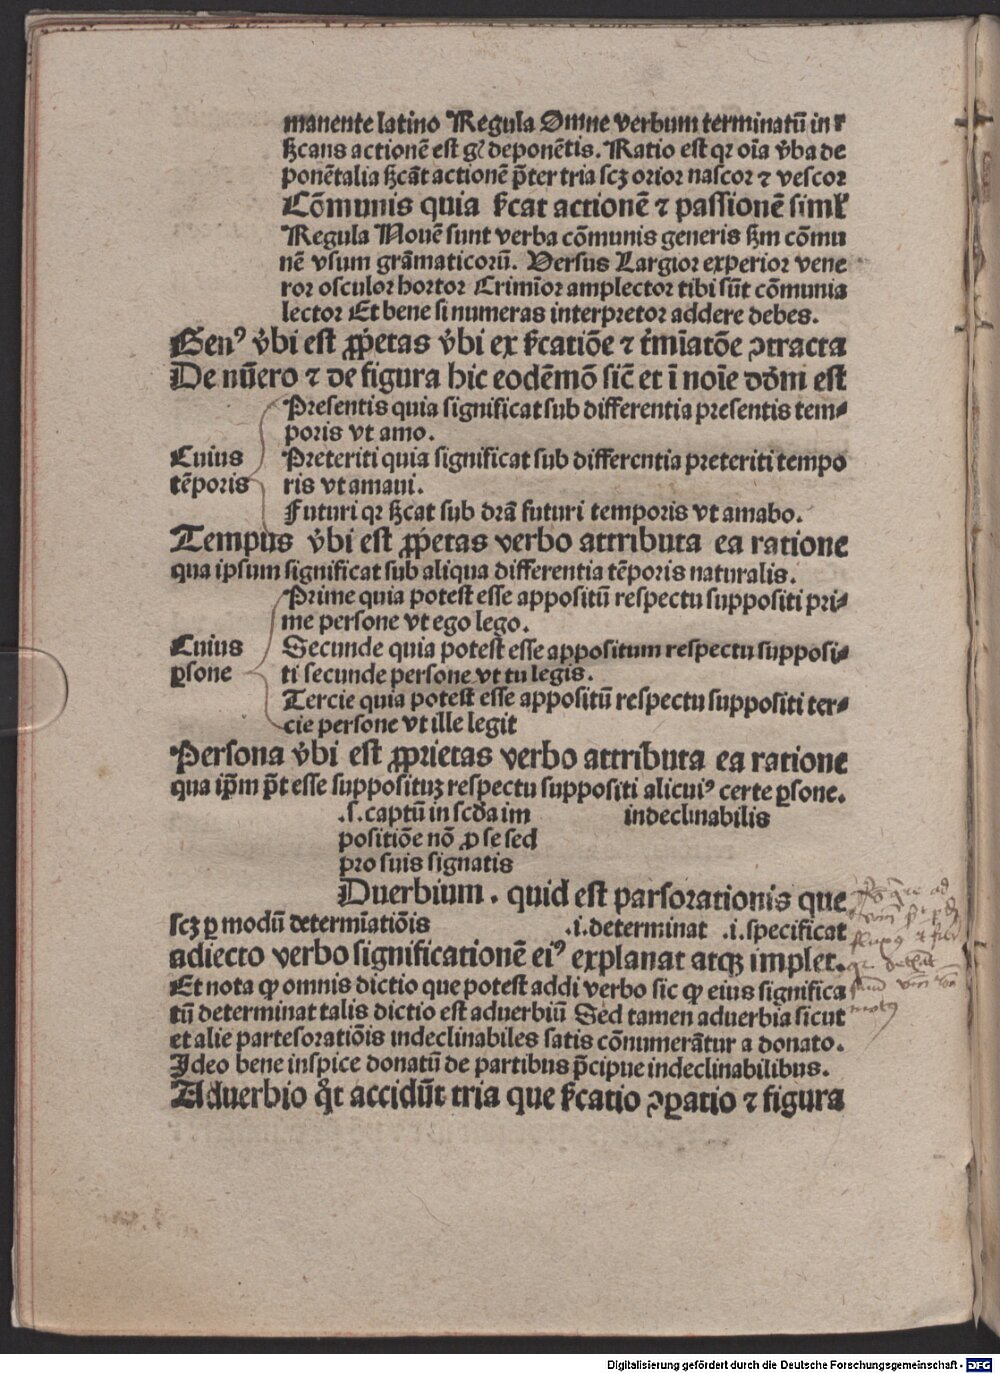 manente latino Regula Omne verbum terminatū in r
ſꝫcans actionē est gͥ deponētis. Ratio est qꝛ oīa v̄ba de
ponētalia ſꝫcāt actionē p̄ter tria scꝫ orior nascor ⁊ vescor
Cōmunis quia ſꝫcat actionē ⁊ passionē siml̕
Regula Nouē sunt verba cōmunis generis ſꝫm cōmu
nē vsum grāmaticorū. Versus Largior experior vene
ror osculor hortor Crimīor amplector tibi sūt cōmunia
lector Et bene si numeras interpretor addere debes.
Genꝰ v̄bi est ꝓp̄etas v̄bi ex ſꝫcatiōe ⁊ t̄mīatōe ↄtracta
De nūero ⁊ de figura hic eodēmō sic̄ et ī noīe dc̄m est
Presentis quia significat sub differentia presentis tem⸗
poris vt amo.
Cuius
tēporis
Preteriti quia significat sub differentia preteriti tempo
ris vt amaui.
Futuri qꝛ ſꝫcat sub drā futuri temporis vt amabo.
Tempus v̄bi est ꝓp̄etas verbo attributa ea ratione
qua ipsum significat sub aliqua differentia tēporis naturalis.
Prime quia potest esse appositū respectu suppositi pri⸗
me persone vt ego lego.
Cuius
ꝑsone
Secunde quia potest esse appositum respectu supposi⸗
ti secunde persone vt tu legis.
Tercie quia potest esse appositū respectu suppositi ter⸗
cie persone vt ille legit
Persona v̄bi est ꝓprietas verbo attributa ea ratione
qua ip̄m p̄t esse supposituꝫ respectu suppositi alicuiꝰ certe ꝑsone.
.s. captū in scd̄a im indeclinabilis
positiōe nō ꝓ se sed
pro suis signatis
Duerbium. quid est parsorationis que
scꝫ ꝑ modū determīatiōis .i.determinat .i.specificat
adiecto verbo significationē eiꝰ explanat atqꝫ implet.
Et nota ꝙ omnis dictio que potest addi verbo sic ꝙ eius significa
tū determinat talis dictio est aduerbiū Sed tamen aduerbia sicut
et alie partesoratiōis indeclinabiles satis cōnumerātur a donato.
Ideo bene inspice donatū de partibus p̄cipue indeclinabilibus.
Aduerbio qͦt accidūt tria que ſꝫcatio ↄꝑatio ⁊ figura
Digitalisierung gefördert durch die Deutsche Forschungsgemeinschaft - DFG